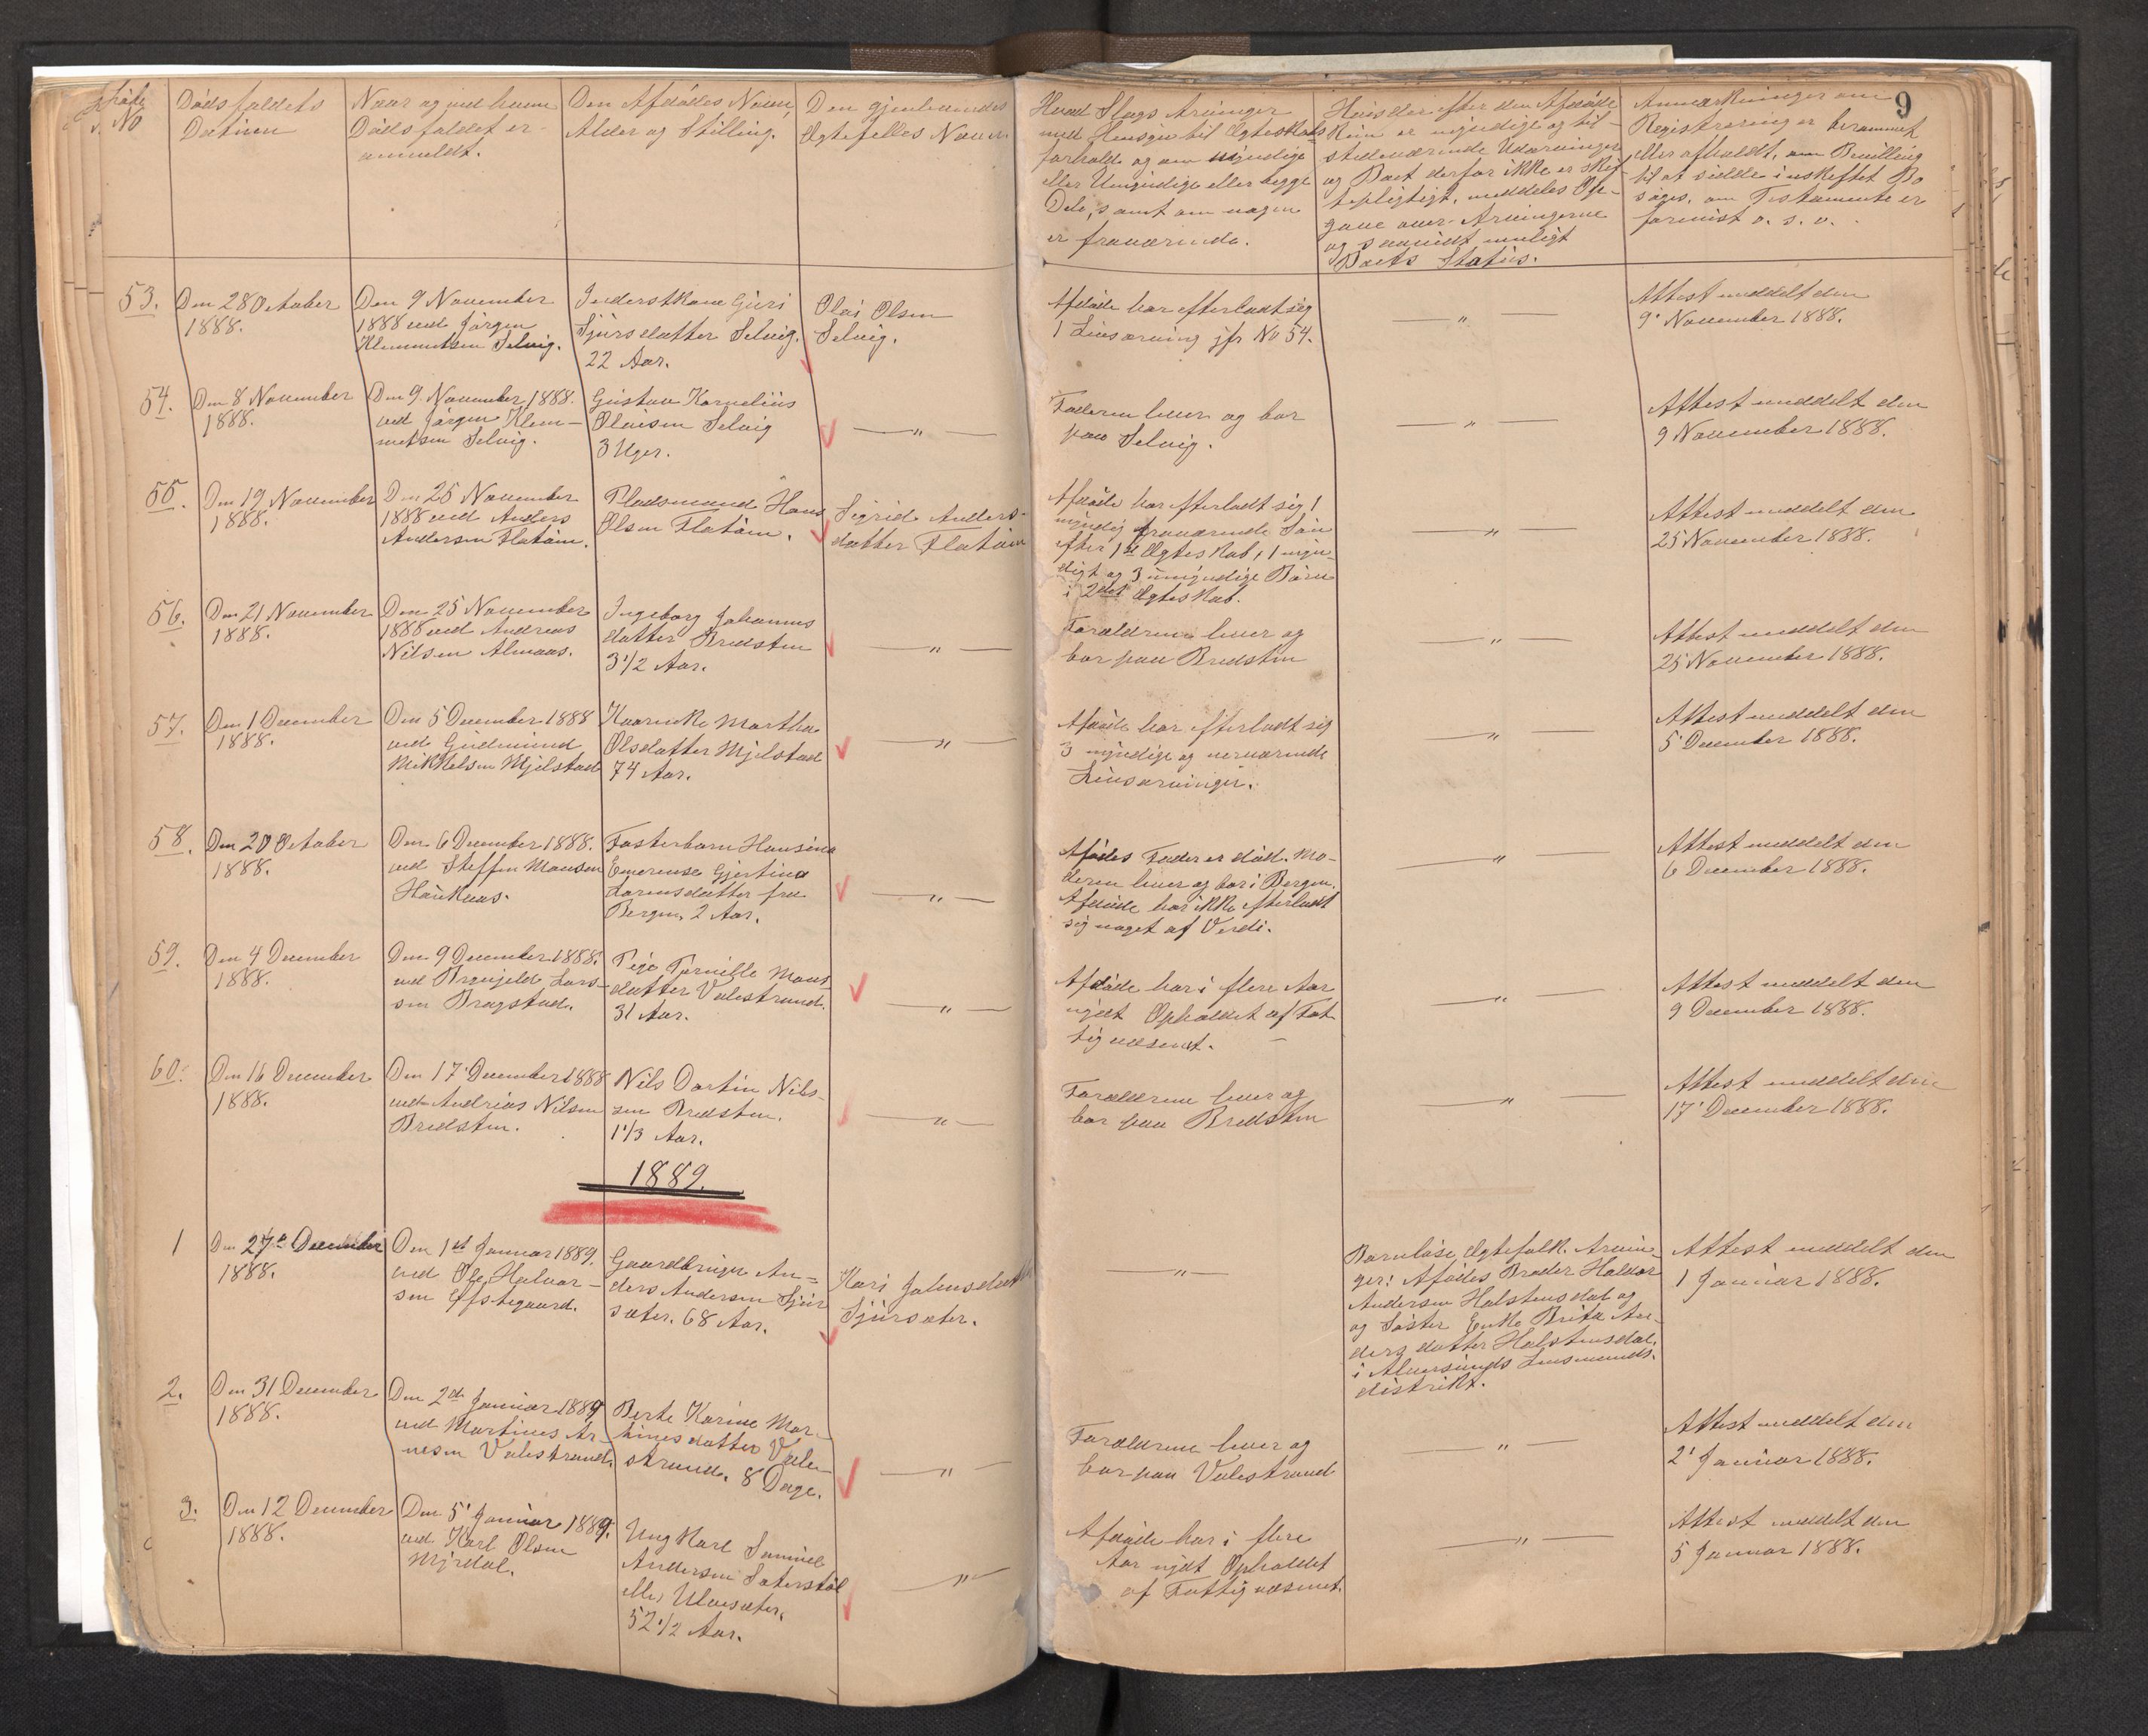 9
No
Dødsfaldets
Datum
Naar og ved hvem
Dødsfaldet er
anmeldt.
Den Afdødes Navn,
Alder og Stilling.
Den gjenlevendes
Ægtefelles Navn
Hvad Slags Arvinger
med Hensyn til Ægteskabs
forhold og om myndige
eller Umyndige eller begge
Dele, samt om nogen
er fraværende.
Hvis der efter den Afdøde
kun er myndige og til-
stedeværende Udarvinger
og Boet derfor ikke er skif-
tepligtigt, meddeles Op-
gave over Arvingerne
og saavidt muligt
Boets Status.
Anmærkninger om
Registrering er berammet
eller afholdt, om Bevilling
til at sidde i uskiftet Bo
søges, om Testamente er
forevist o. s. v.
53.
Den 28 October
1888.
Den 9 November
1888 ved Jørgen
Klemmetsen Selvig.
Inderstkone Guri
Sjursdatter Selvig.
22 Aar.
Olai Olsen
Selvig.
Afdøde har efterladt sig
1 Livsarving jfr No 54.
— " —
Attest meddelt den
9' November 1888.
54.
Den 8 November
1888.
Den 9. November 1888.
ved Jørgen Klem-
metsen Selvig.
Gustav Kornelius
Olaisen Selvig
3 Uger.
— " —
Faderen lever og bor
paa Selvig.
— " —
Attest meddelt den
9 November 1888.
55.
Den 19 November
1888.
Den 25 November
1888 ved Anders
Andersen Flatøen.
Pladsmand Hans
Olsen Flatøen.
Sigrid Anders-
datter Flatøen
Afdøde har efterladt sig 1
myndig fraværende Søn
efter 1st Ægteskab, 1 myn-
digt og 3 umyndige Børn
i 2det Ægteskab.
— " —
Attest meddelt den
25 November 1888.
56.
Den 21 November
1888.
Den 25 November
1888 ved Andreas
Nilsen Almaas.
Ingeborg Johannes
datter Bredsten
3 1/2 Aar.
— " —
Forældrene lever og
bor paa Bredsten
— " —
Attest meddelt den
25 November 1888.
57.
Den 1 December
1888.
Den 5 December 1888
ved Gudmund
Mikkelsen Mjelstad
Kaarenke Martha
Olsdatter Mjelstad
74 Aar.
— " —
Afdøde har efterladt sig
3 myndige og nærværende
Livsarvinger.
— " —
Attest meddelt den
5' December 1888.
58.
Den 20 October
1888.
Den 6 December 1888.
ved Steffen Monsen
Haukaas.
Fosterbarn Hansina
Emerense Gjertina
Larensdatter fra
Bergen, 2 Aar.
— " —
Afdødes Fader er død. Mo-
deren lever og bor i Bergen.
Afdøde har ikke efterladt
sig noget af Verdi.
— " —
Attest meddelt den
6 December 1888.
59.
Den 4 December
1888.
Den 9 December 1888.
ved Brynjeld Lars-
sen Bragstad.
Pige Pernille Mons
datter Valestrand.
31 Aar.
— " —
Afdøde har i flere Aar
nydt Ophaldet af Fat
tigvæsenet.
— " —
Attest meddelt den
9 December 1888.
60.
Den 16 December
1888.
Den 17' December 1888
ved Andreas Nilsen
Bredsten.
Nils Dortin Nils-
sen Bredsten.
1 1/3 Aar.
— " —
Forældrene lever og
bor paa Bredsten
— " —
Attest meddelt den
17' December 1888.
1889.
1
Den 27de December
1888.
Den 1st Januar 1889.
ved Ole Halvor-
sen Efstegaard.
Gaardbruger An-
ders Andersen Sjur
sæter. 68 Aar.
Kari Johnsdatter
Sjursæter.
— " —
Barnløse Ægtefolk. Arvin-
ger: Afdødes Broder Haldor
Andersen Holstensdal og
og Søster Enke Brita An-
dersdatter Holstensdal.
i Alversunds Lensmands-
distrikt.
Attest meddelt den
1 Januar 1888.
2.
Den 31 December
1888.
Den 2de Januar 1889
ved Martines Ar-
nesen Valestrand.
Berte Karine Mar-
tinesdatter Vale-
strand. 8 Dage.
— " —
Forældrene lever og
bor paa Valestrand
— " —
Attest meddelt den
2' Januar 1888.
3.
Den 12 December
1888.
Den 5' Januar 1889.
ved Karl Olsen
Mjrdal.
Ungkarl Samuel
Andersen Sæterstøl
eller Ulvesæter.
52 1/2 Aar.
— " —
Afdøde har i flere
Aar nydt Ophaldet
af Fattigvæsenet.
— " —
Attest meddelt den
5 Januar 1888.